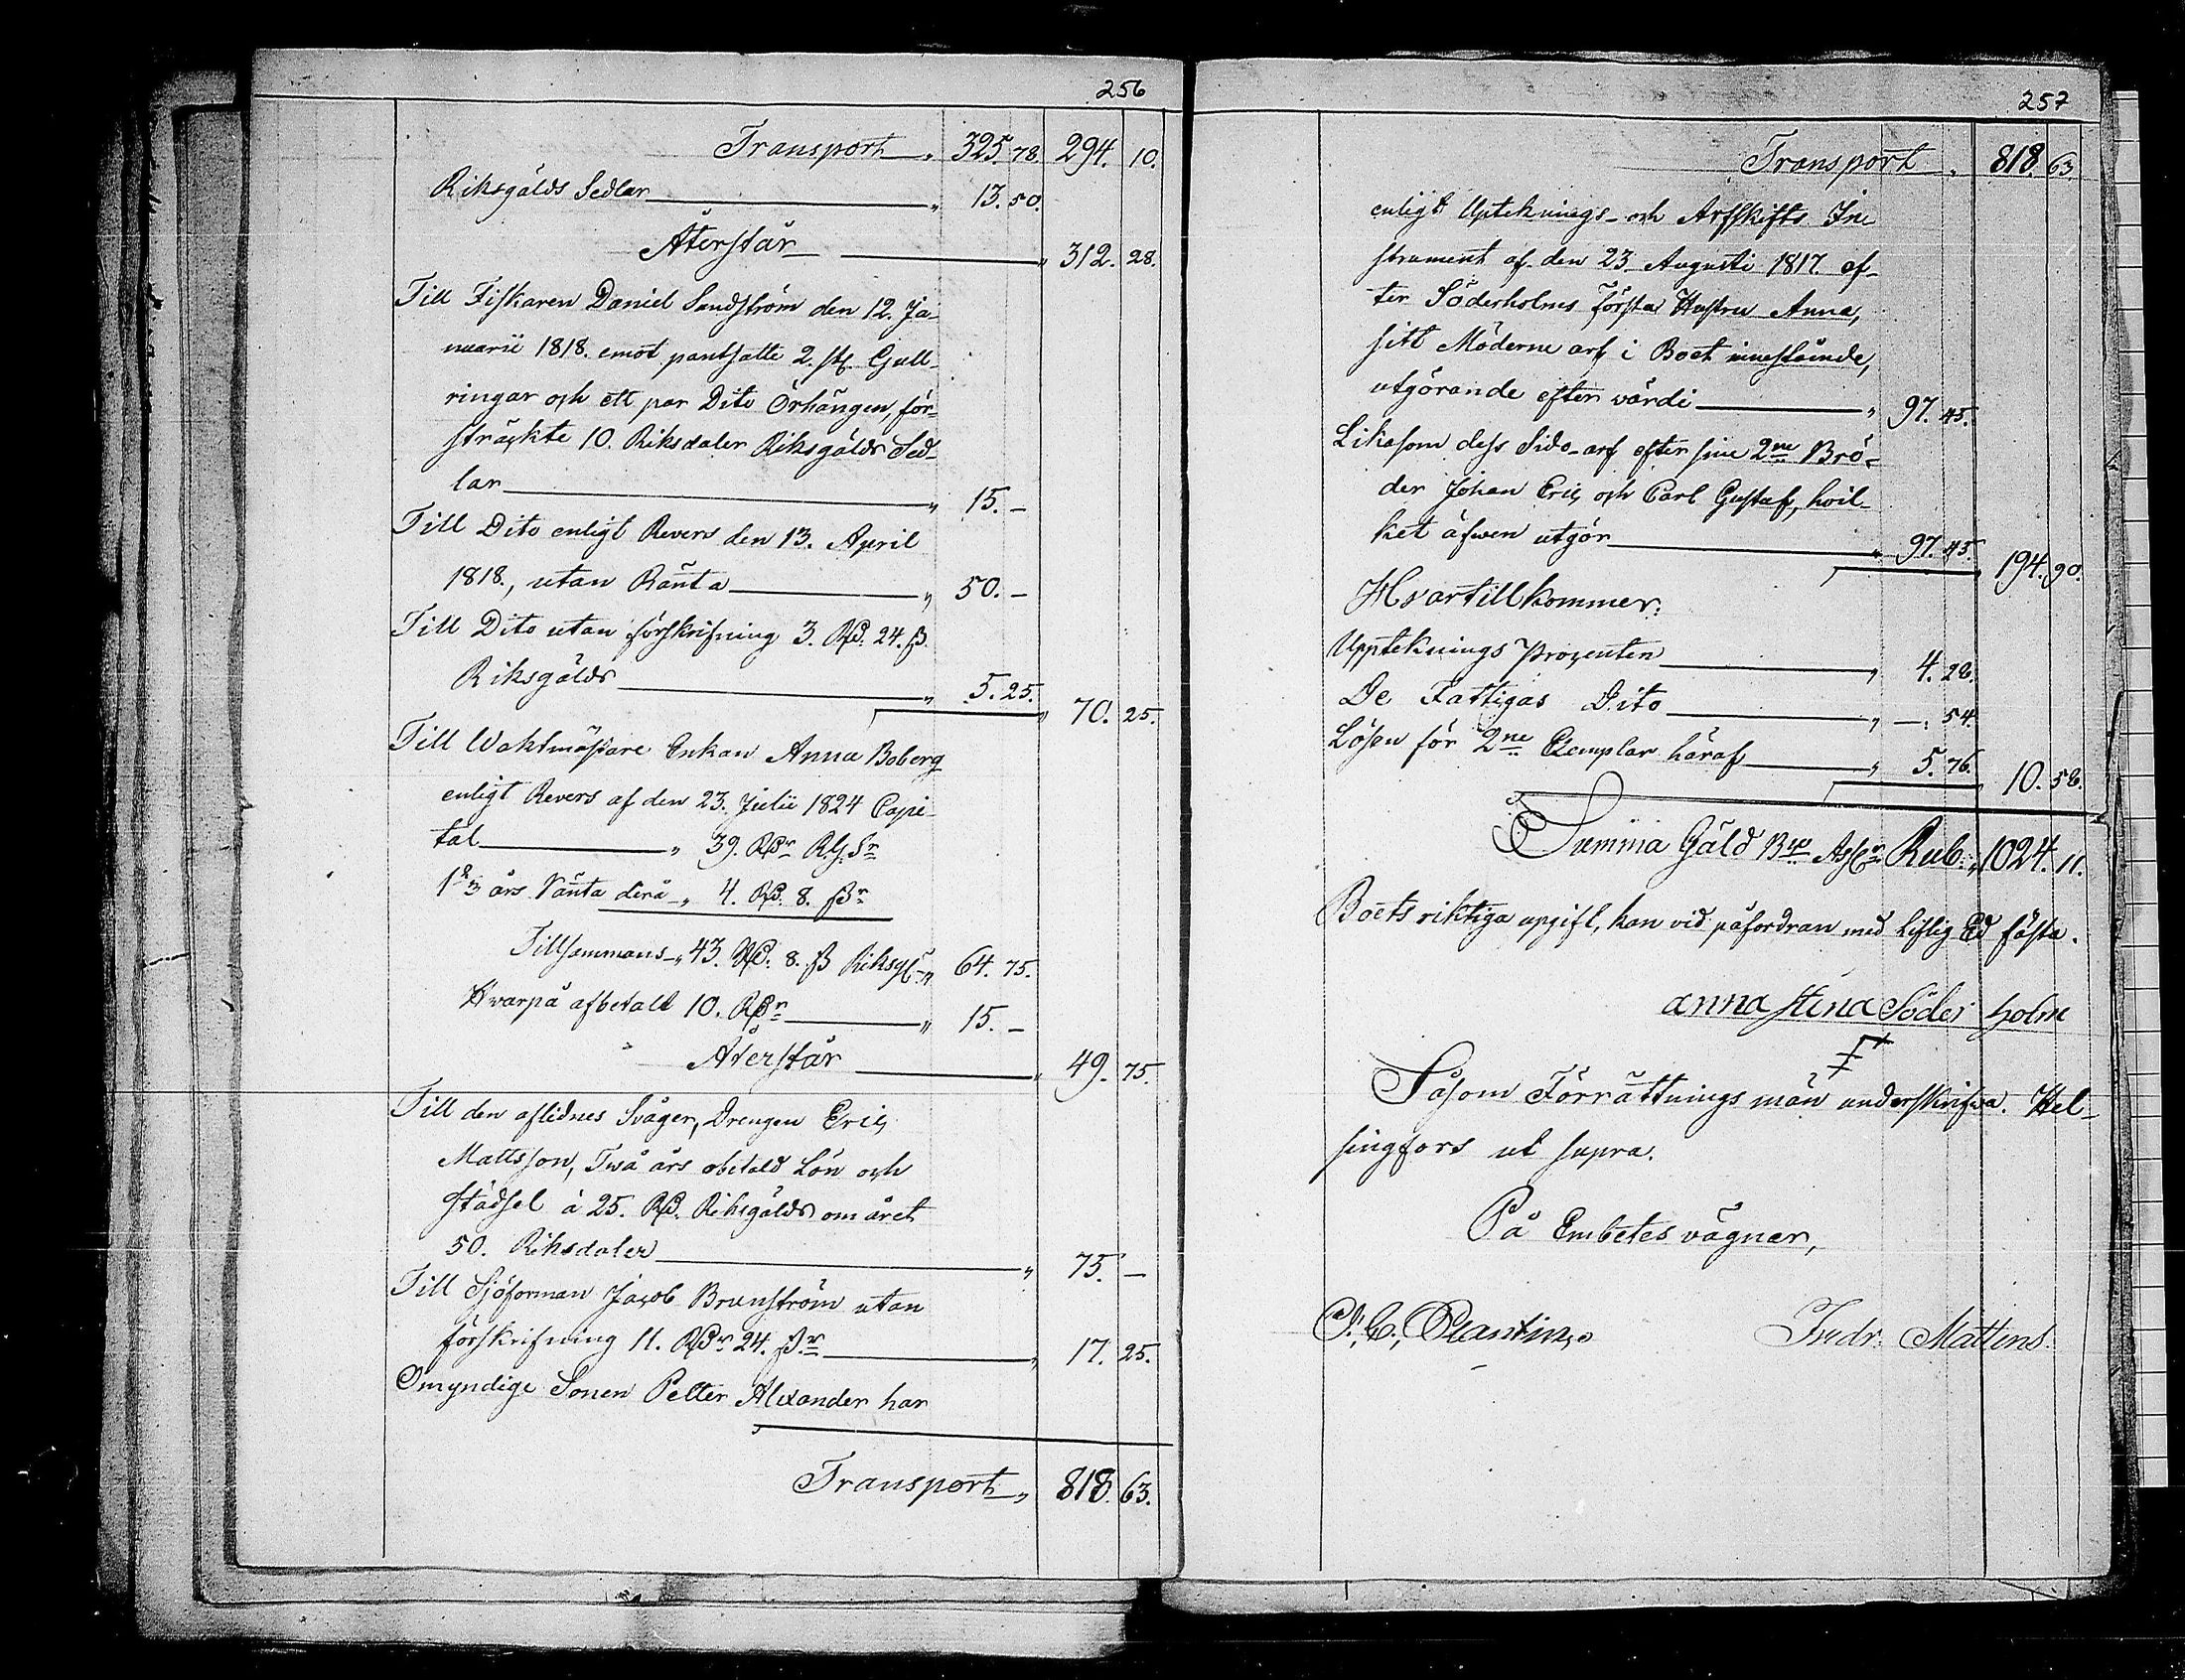 256
Transport „ 325. 78. 294. 10.
Riksgälds Sedlar „ 13. 50.
Återstår „ 312. 28.
Till Fiskaren Daniel Sandström den 12. Ja-
nuarii 1818. emot pantsatte 2. st. Gull-
ringar och ett par Dito Örhängen, för-
sträckte 10. Riksdaler Riksgälds Sed-
lar „ 15. –
Till Dito enligt Revers den 13. April
1818., utan Ränta „ 50. –
Till Dito utan förskrifning 3. RD. 24. ß.
Riksgälds „ 5. 25. „ 70. 25.
Till Waktmästare Enkan Anna Boberg
enligt Revers af den 23. Julii 1824 Capi-
tal „ 39. RDr R.G.Sr
1 2/3 års Ränta derå „ 4. RD. 8. ßr
Tillsammans „ 43. RD. 8. ß Riksg. „ 64. 75.
Hvarpå afbetalt 10. RDr „ 15. –
Återstår „ 49. 75.
Till den aflidnes Svåger, Drengen Eric
Mattsson, Två års obetald Lön och
städsel à 25. RD. Riksgälds om året
50. Riksdaler „ 75. –
Till Sjöforman Jacob Brunström utan
förskrifning 11. RDr 24. ßr „ 17. 25.
Omyndige Sonen Petter Alexander har
Transport „ 818. 63.
257
Transport „ 818. 63.
enligt Upteknings- och Arfskifts In-
strument af den 23 Augusti 1817 ef-
ter Söderholms första Hustru Anna,
sitt Möderne arf i Boet innestående,
utgörande efter värdi „ 97. 45.
Likasom dess Sido-arf efter sine 2ne Brö-
der Johan Eric och Carl Gustaf, hvil-
ket äfwen utgör „ 97. 45. 194. 90.
Hvartill kommer:
Uppteknings Procenten „ 4. 28.
De Fattigas Dito „ –. 54.
Lösen för 2ne Exemplar häraf „ 5. 76. 10. 58.
Summa Gäld Bco Assr Rub. „ 1024. 11.
Boets riktiga upgift, kan vid påfordran med Liflig Ed fästa.
anna stina Söder holm
Såsom Förrättnings män underskrifva. Hel-
singfors ut supra.
På Embetes vägnar,
Plantin
Fredr. Mattens.